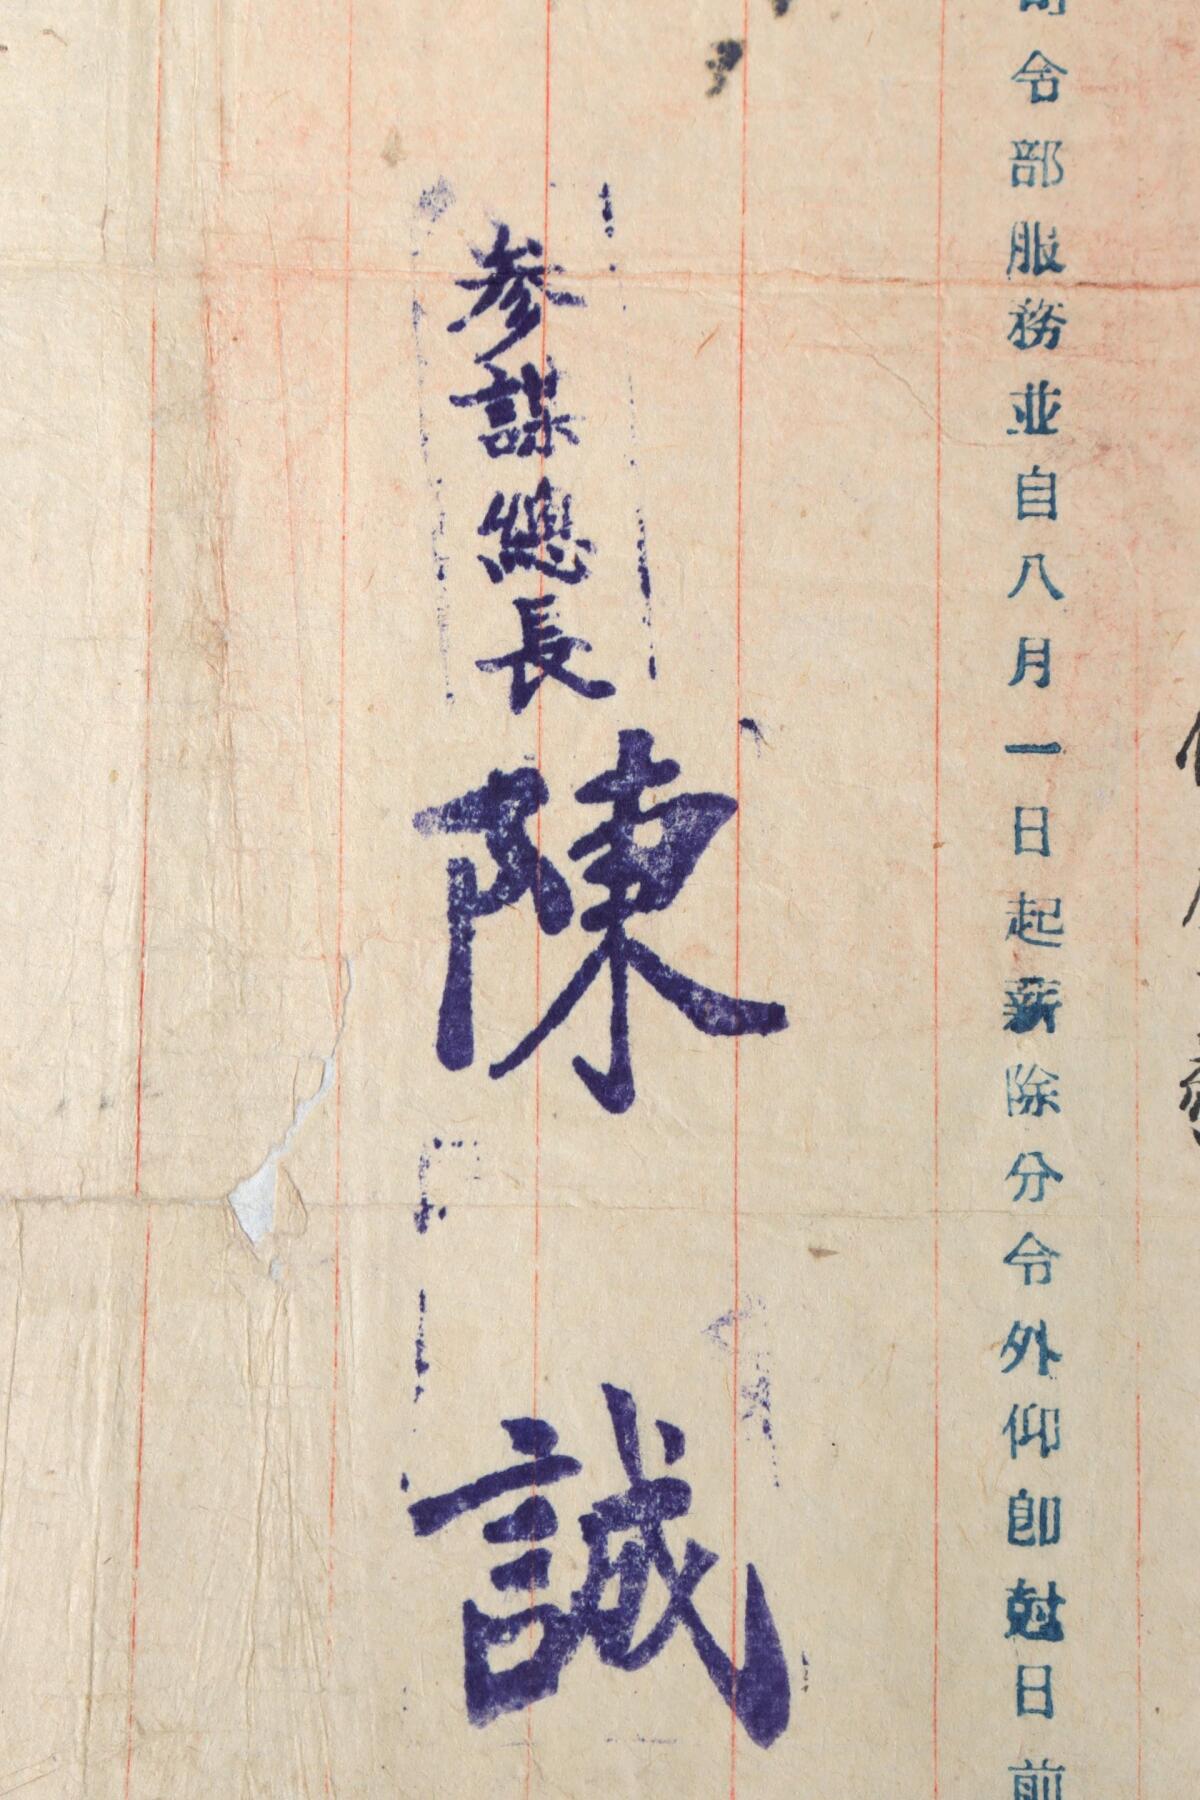 令部服務並自八月一日起薪除分令外仰即尅日前
参謀總長陳誠